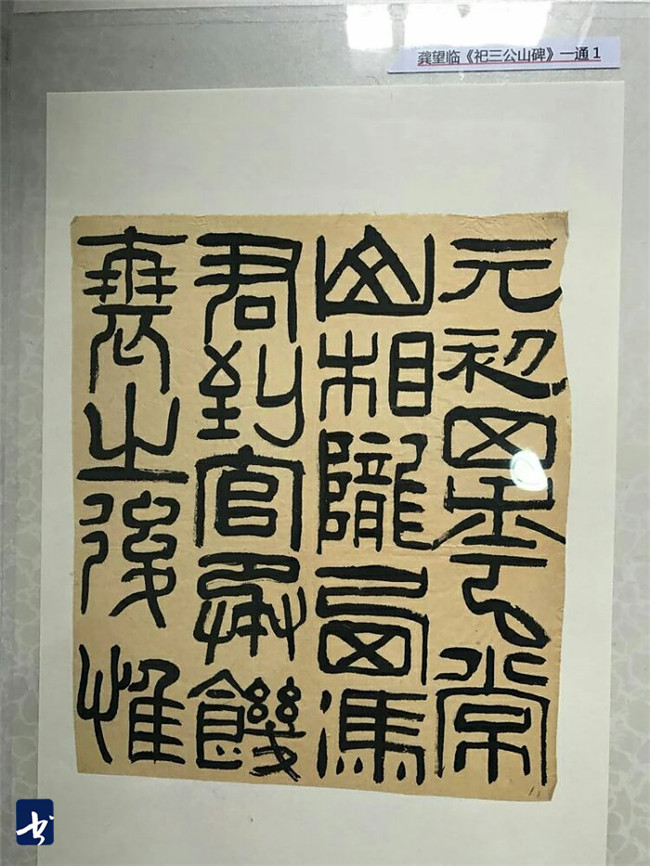 龚望临《祀三公山碑》一通 1
元初四年常
山相隴西馮
君到官承饑
衰之後惟